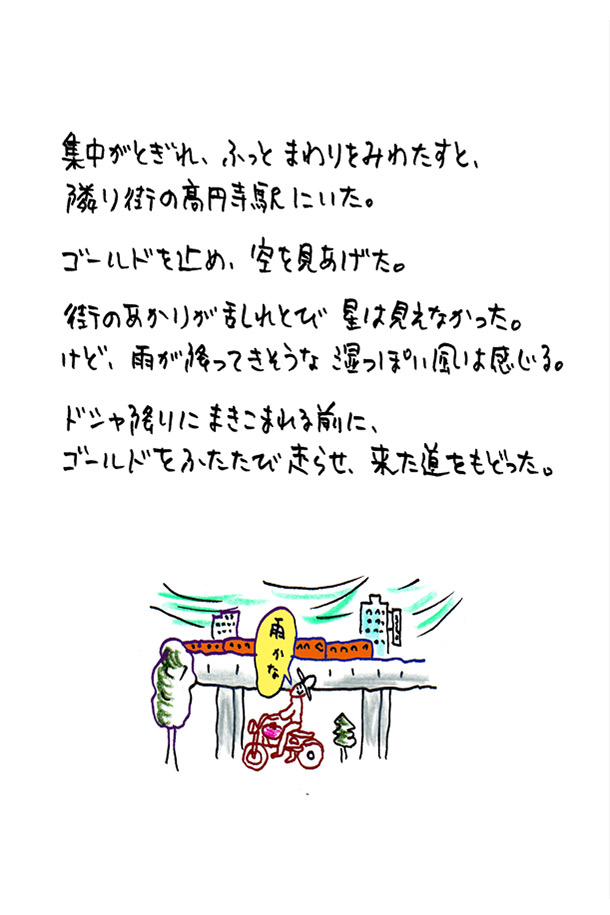 集中がとぎれ、ふっと まわりをみわたすと、
隣り街の高円寺駅にいた。
ゴールドを止め、空を見あげた。
街のあかりが乱れとび 星は見えなかった。
けど、雨が降ってきそうな 湿っぽい風は感じる。
ドシャ降りに まきこまれる前に、
ゴールドをふたたび走らせ、来た道をもどった。
雨かな